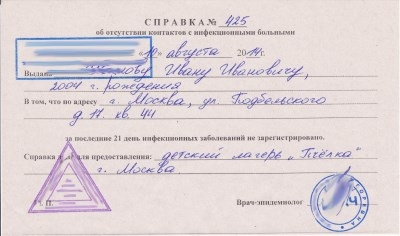 СПРАВКА № 425
об отсутствии контактов с инфекционными больными
"10" августа 2014 г.
Выдана Ивану Ивановичу,
2004 г. рождения
В том, что по адресу г. Москва, ул. Подбельского
д. 17. кв. 44
за последние 21 день инфекционных заболеваний не зарегистрировано.
Справка для предоставления: детский лагерь "Пчёлка"
г. Москва
М. П. Врач-эпидемиолог